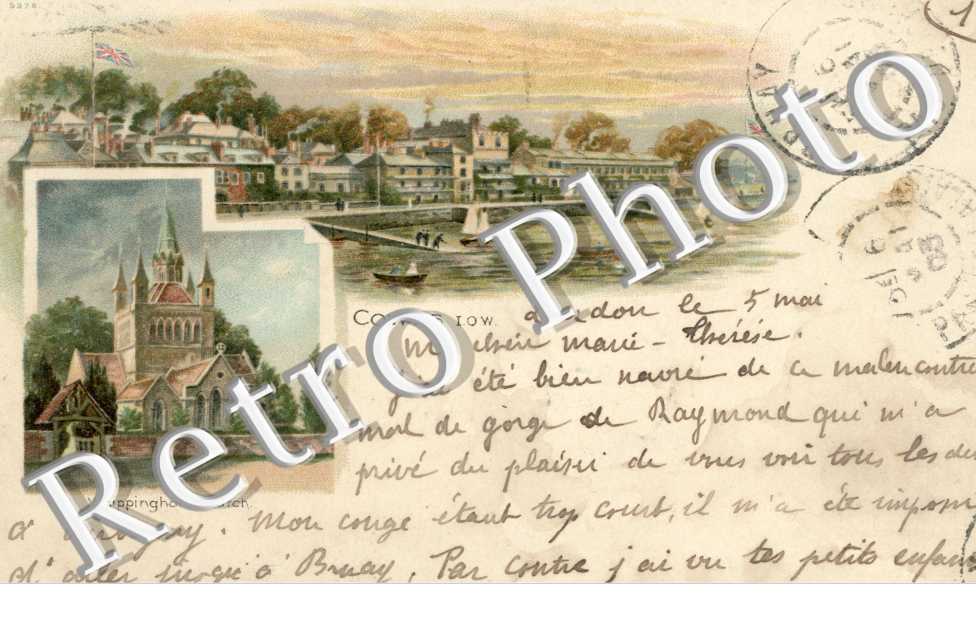 5376
COWES I.O.W.
Whippingham Church.
le 5 mai
chère marie-thérèse.
été bien navré de ce malencontre
mal de gorge de Raymond qui m'a
privé du plaisir de vous voir tous les de
Mon congé étant trop court, il m'a été imposs
d'aller jusqu'à Bruay, Par contre j'ai vu tes petits enfan
BRUAY
1
Retro Photo